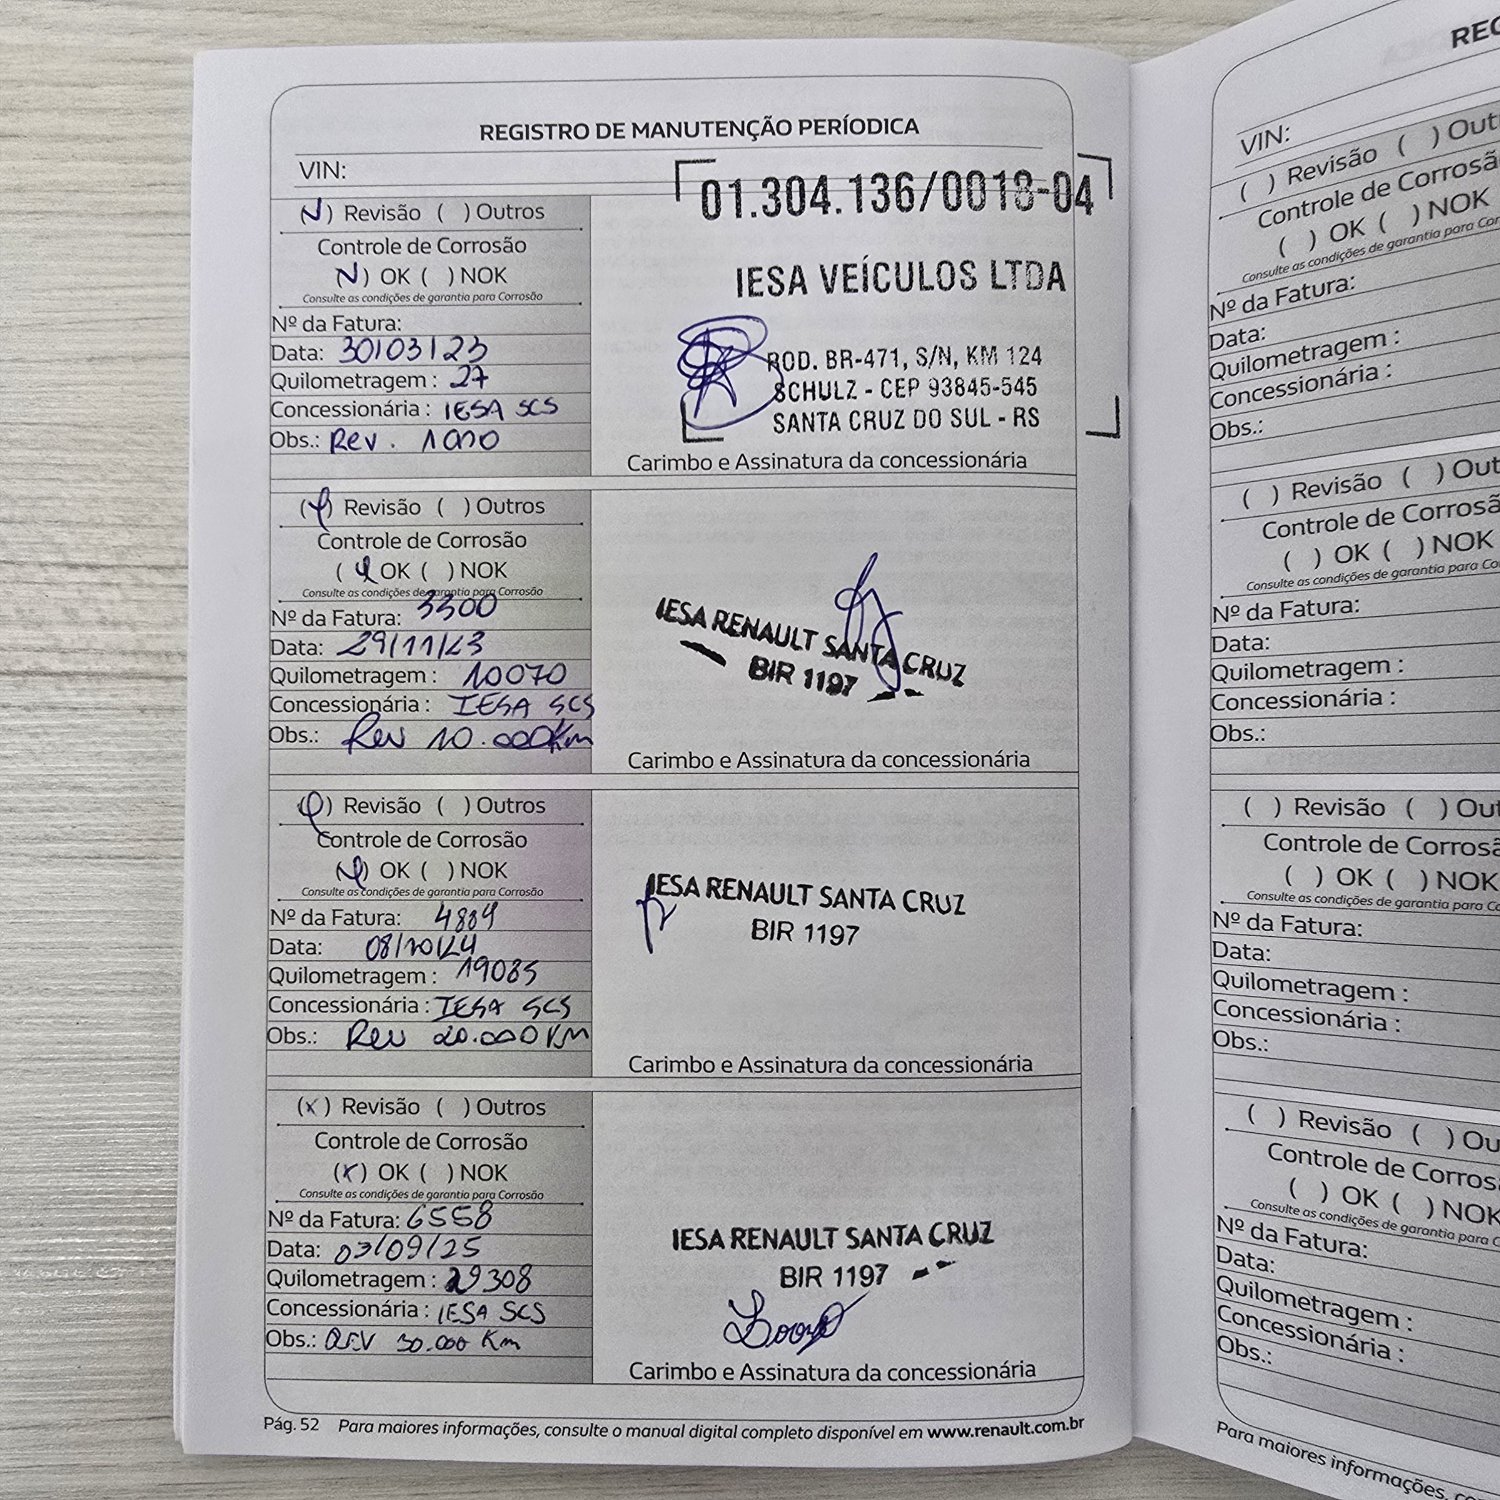 REGISTRO DE MANUTENÇÃO PERÍODICA
VIN:
01.304.136/0018-04
IESA VEÍCULOS LTDA
ROD. BR-471, S/N, KM 124
SCHULZ - CEP 93845-545
SANTA CRUZ DO SUL - RS
( ) Revisão ( ) Outros
Controle de Corrosão
( ) OK ( ) NOK
Consulte as condições de garantia para Corrosão
Nº da Fatura:
Data: 30/03/23
Quilometragem : 27
Concessionária : IESA SCS
Obs.: Rev.
Carimbo e Assinatura da concessionária
( ) Revisão ( ) Outros
Controle de Corrosão
( ) OK ( ) NOK
Consulte as condições de garantia para Corrosão
Nº da Fatura: 3300
Data: 29/11/23
Quilometragem : 10070
Concessionária : IESA SCS
Obs.: Rev 10.000Km
IESA RENAULT SANTA CRUZ
BIR 1197
Carimbo e Assinatura da concessionária
( ) Revisão ( ) Outros
Controle de Corrosão
( ) OK ( ) NOK
Consulte as condições de garantia para Corrosão
Nº da Fatura: 4889
Data: 08/10/24
Quilometragem : 19085
Concessionária : IESA SCS
Obs.: Rev 20.000KM
IESA RENAULT SANTA CRUZ
BIR 1197
Carimbo e Assinatura da concessionária
(x) Revisão ( ) Outros
Controle de Corrosão
(x) OK ( ) NOK
Consulte as condições de garantia para Corrosão
Nº da Fatura: 6558
Data: 03/09/25
Quilometragem : 29308
Concessionária : IESA SCS
Obs.: REV 30.000 Km
IESA RENAULT SANTA CRUZ
BIR 1197
Carimbo e Assinatura da concessionária
Pág. 52 Para maiores informações, consulte o manual digital completo disponível em www.renault.com.br
VIN:
( ) Revisão ( )
Controle de
( ) OK ( ) NOK
Consulte as condições de garantia para
Nº da Fatura:
Data:
Quilometragem :
Concessionária :
Obs.:
( ) Revisão ( )
Controle de
( ) OK ( ) NOK
Consulte as condições de garantia para
Nº da Fatura:
Data:
Quilometragem :
Concessionária :
Obs.:
( ) Revisão ( )
Controle de
( ) OK ( ) NOK
Consulte as condições de garantia para
Nº da Fatura:
Data:
Quilometragem :
Concessionária :
Obs.:
( ) Revisão ( )
Controle de
( ) OK ( ) NOK
Consulte as condições de garantia para
Nº da Fatura:
Data:
Quilometragem :
Concessionária :
Obs.:
Para maiores informações,